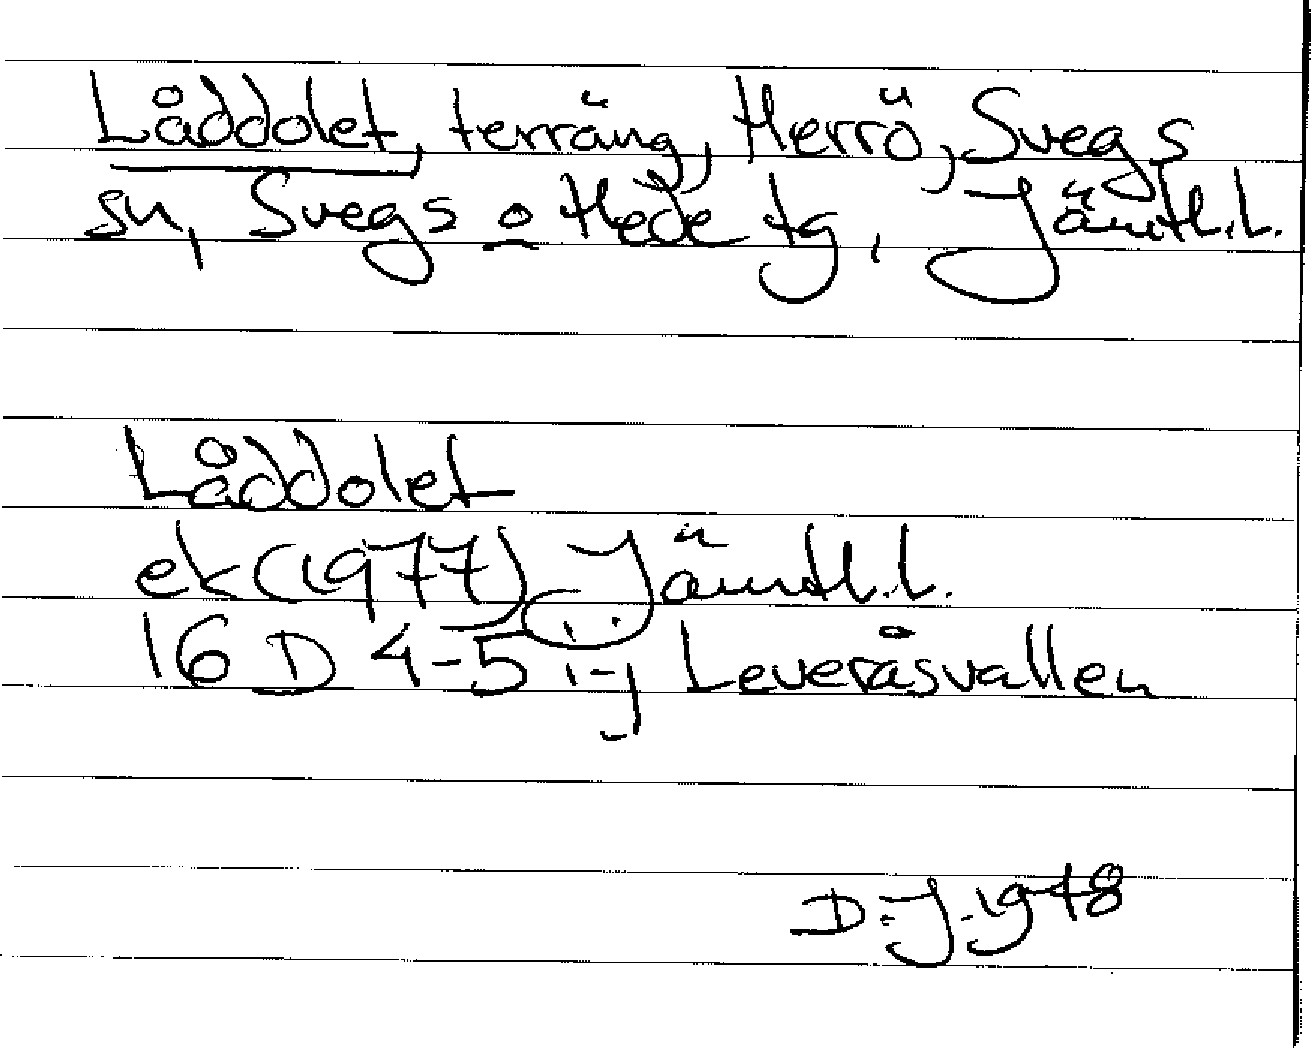 Låddolet, terräng, Herrö, Svegs
sn, Svegs o Hede tg, Jämtl.L.
Låddolet
ek (1977) Jämtl.L.
16 D 4-5 i-j Leveråsvallen
D.J. 1978